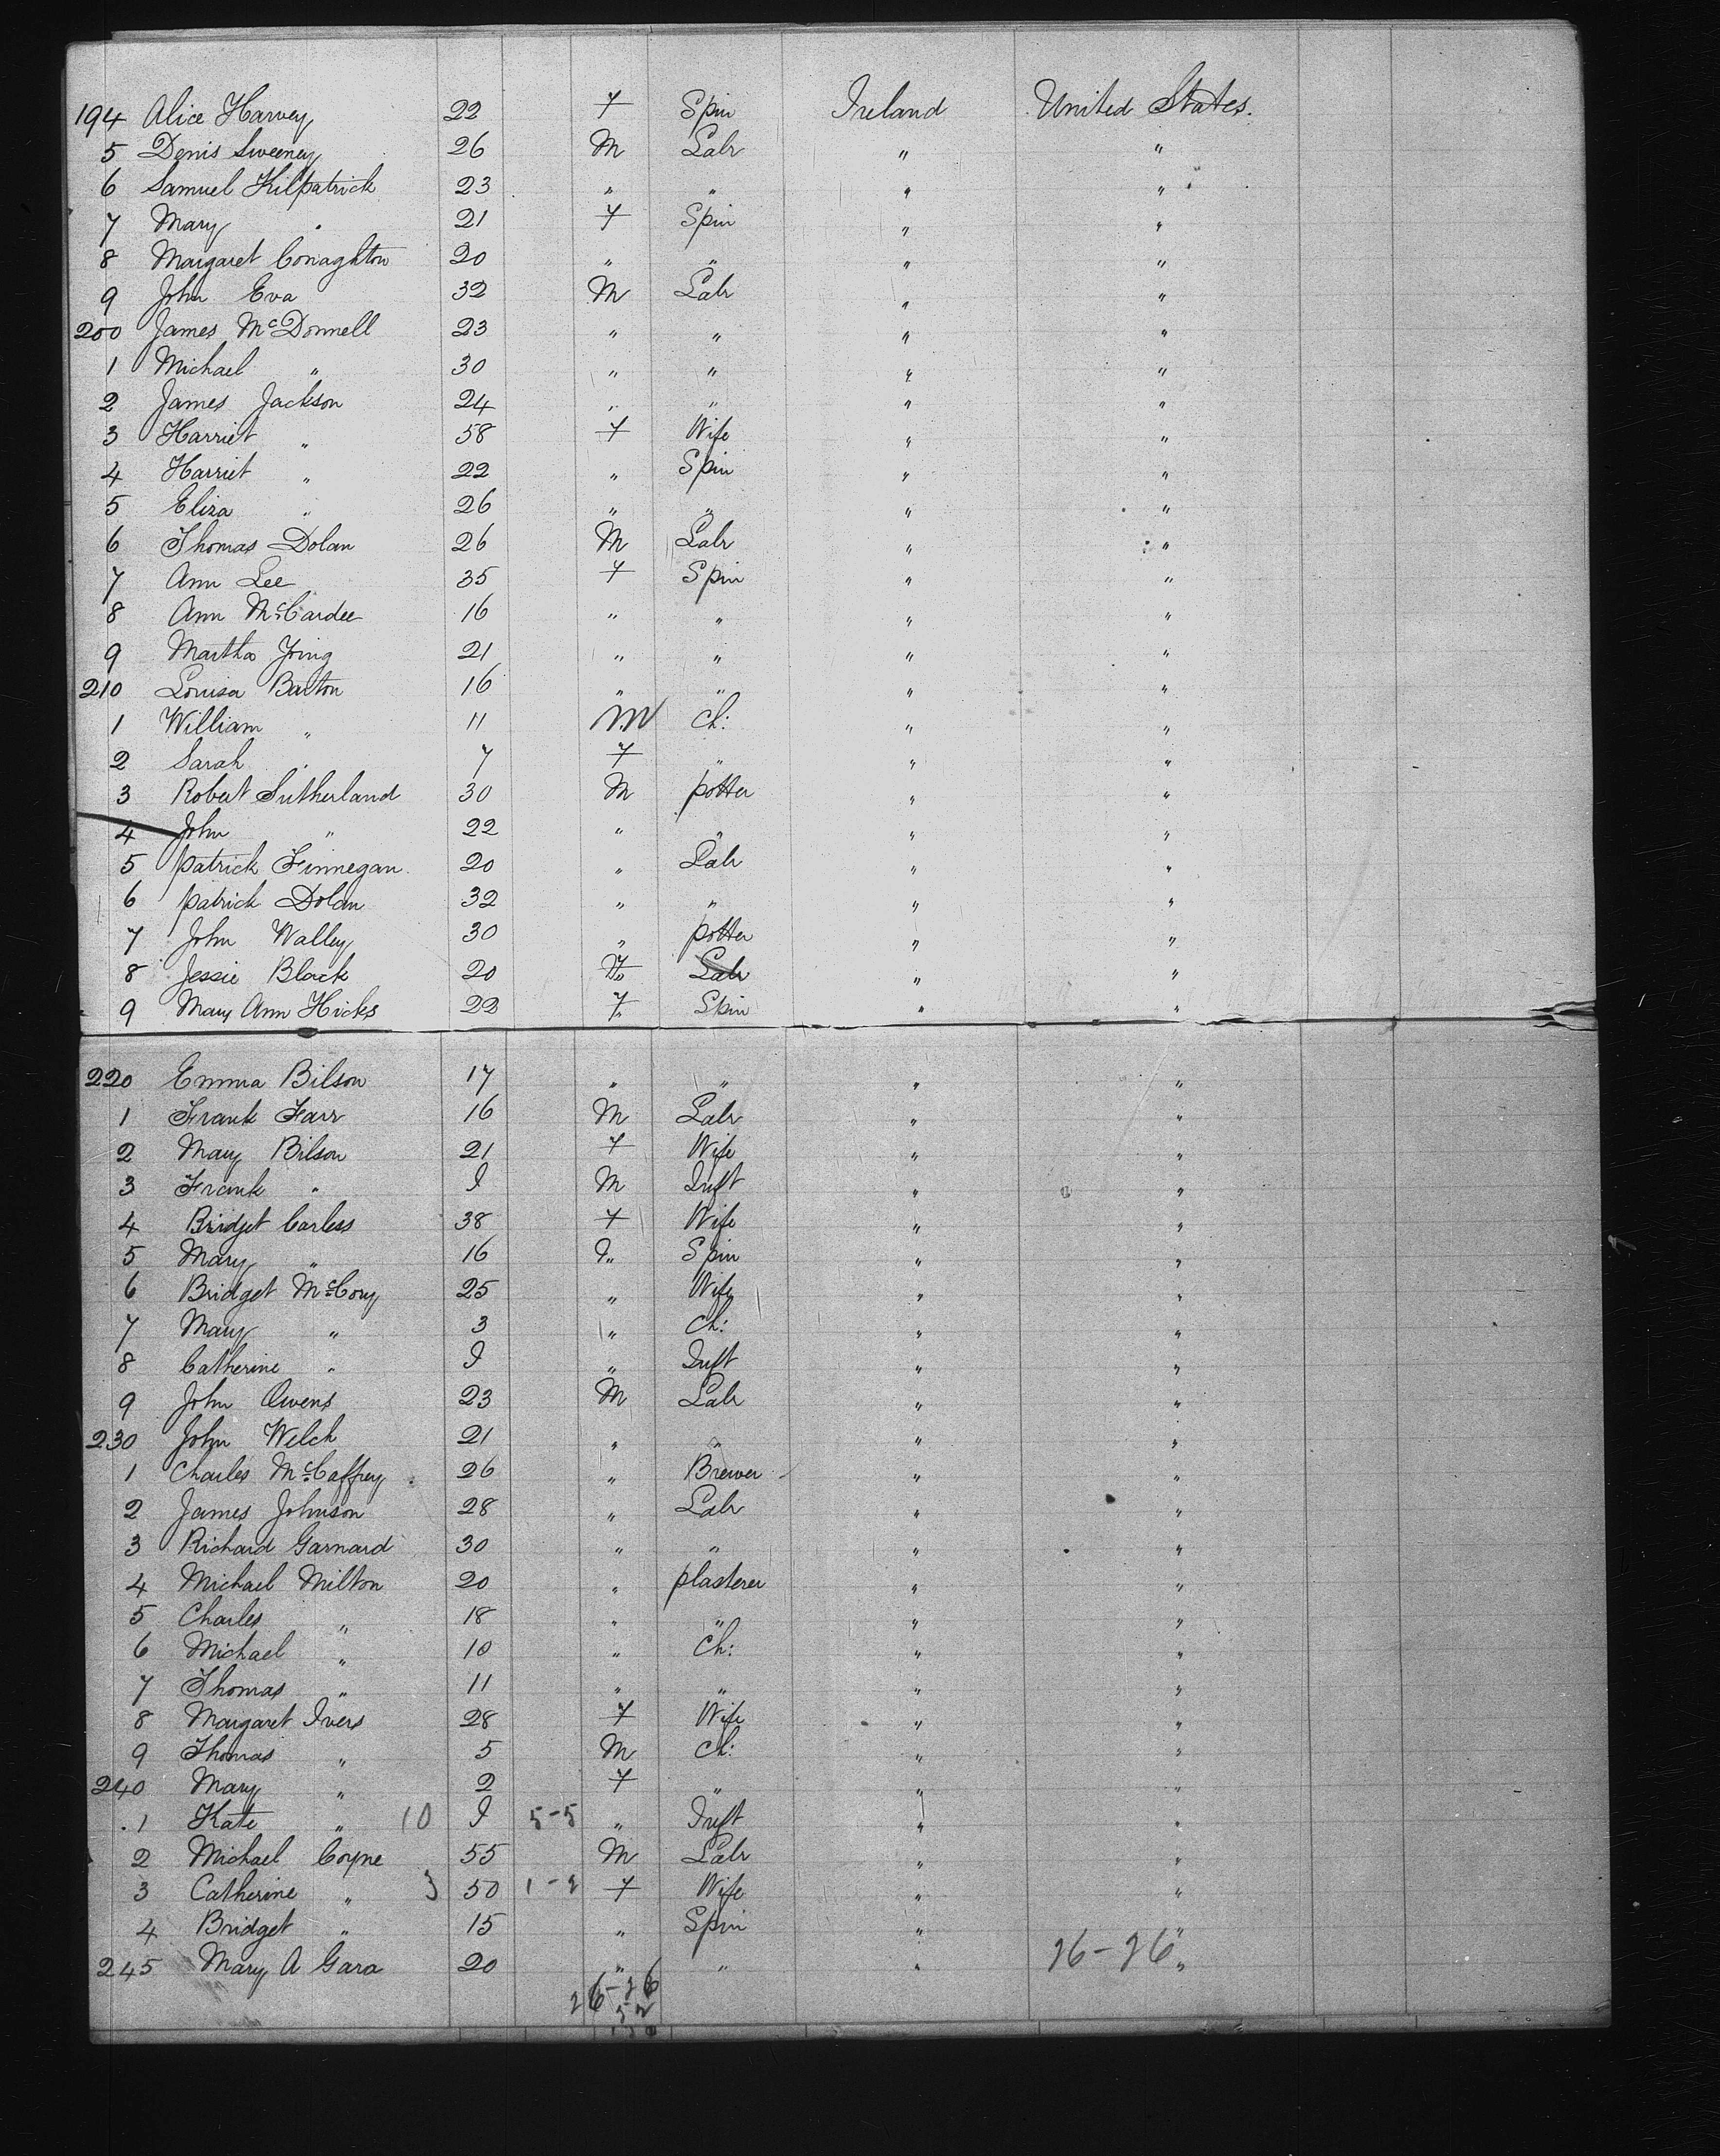 194 Alice Harvey 22 F Spin Ireland United States.
5 Denis Sweeney 26 M Labr " "
6 Samuel Kilpatrick 23 " " " "
7 Mary " 21 F Spin " "
8 Margaret Conaghton 20 " " " "
9 John Eva 32 M Labr " "
200 James McDonnell 23 " " " "
1 Michael " 30 " " " "
2 James Jackson 24 " " " "
3 Harriet " 58 F Wife " "
4 Harriet " 22 " Spin " "
5 Eliza " 26 " " " "
6 Thomas Dolan 26 M Labr " "
7 Ann Lee 35 F Spin " "
8 Ann McCardee 16 " " " "
9 Martha 21 " " " "
210 Louisa Barton 16 " " " "
1 William " 11 M Ch: " "
2 Sarah " 7 F " " "
3 Robert Sutherland 30 M potter " "
4 John " 22 " " " "
5 Patrick Finnegan 20 " Labr " "
6 Patrick Dolan 32 " " " "
7 John Walley 30 " potter " "
8 Jessie Black 20 Labr " "
9 Mary Ann Hicks 22 F Spin " "
220 Emma Bilson 17 " " " "
1 Frank Farr 16 M Labr " "
2 Mary Bilson 21 F Wife " "
3 Frank " I M Inft " "
4 Bridget Carless 38 F Wife " "
5 Mary " 16 " Spin " "
6 Bridget McCory 25 " Wife " "
7 Mary " 3 " Ch: " "
8 Catherine " I " Inft " "
9 John Owens 23 M Labr " "
230 John Welch 21 " " " "
1 Charles McCaffrey 26 " Brewer " "
2 James Johnson 28 " Labr " "
3 Richard Garnard 30 " " " "
4 Michael Milton 20 " plasterer " "
5 Charles " 18 " " " "
6 Michael " 10 " Ch: " "
7 Thomas " 11 " " " "
8 Margaret Ivers 28 F Wife " "
9 Thomas " 5 M Ch: " "
240 Mary " 2 F " " "
1 Kate " 10 I 5-5 " Inft " "
2 Michael Coyne 55 M Labr " "
3 Catherine " 3 50 1-2 F Wife " "
4 Bridget " 15 " Spin " "
245 Mary A Gara 20 " " " 26-26 "
26-26
52